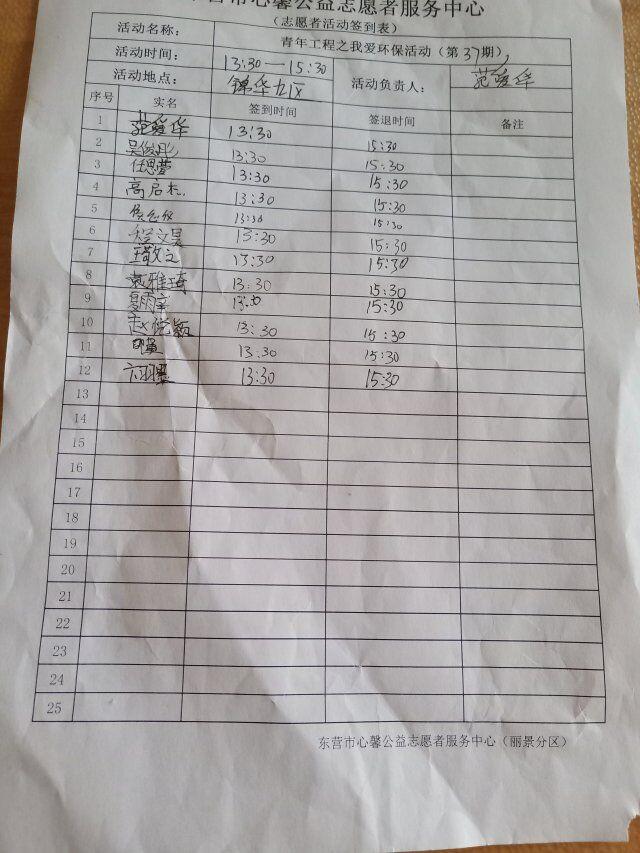 营市心馨公益志愿者服务中心
（志愿者活动签到表）
活动名称： 青年工程之我爱环保活动（第37期）
活动时间： 13:30—15:30
活动地点： 锦华九区 活动负责人： 范爱华
序号 实名 签到时间 签退时间 备注
1 范爱华 13:30
2 吴俊彤 13:30 15:30
3 任思莹 13:30 15:30
4 高启杰 13:30 15:30
5 13:30 15:30
6 程文昊 15:30 15:30
7 王敬文 13:30 15:30
8 雅琦 13:30 15:30
9 夏雨 13:30 15:30
10 赵悦颖 13:30 15:30
11 13:30 15:30
12 13:30 15:30
13
14
15
16
17
18
19
20
21
22
23
24
25
东营市心馨公益志愿者服务中心（丽景分区）